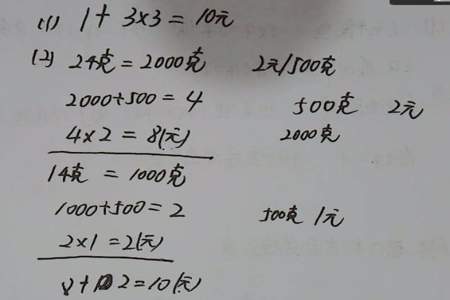 (1) 1 + 3×3 = 10元
(2) 24克 = 2000克 2元/500克
2000÷500 = 4 500克 2元
4×2 = 8(元) 2000克
14克 = 1000克
1000÷500 = 2 500克 1元
2×1 = 2(元)
8+2=10(元)